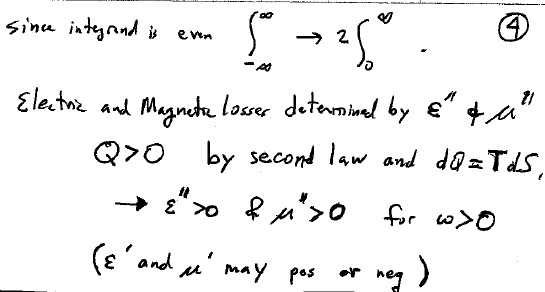 ④
Since integrand is even ∫_{-∞}^{∞} → 2∫_{0}^{∞} .
Electric and Magnetic losses determined by ε" & μ"
Q>0 by second law and dQ=TdS,
→ ε">0 & μ">0 for ω>0
(ε' and μ' may pos or neg)